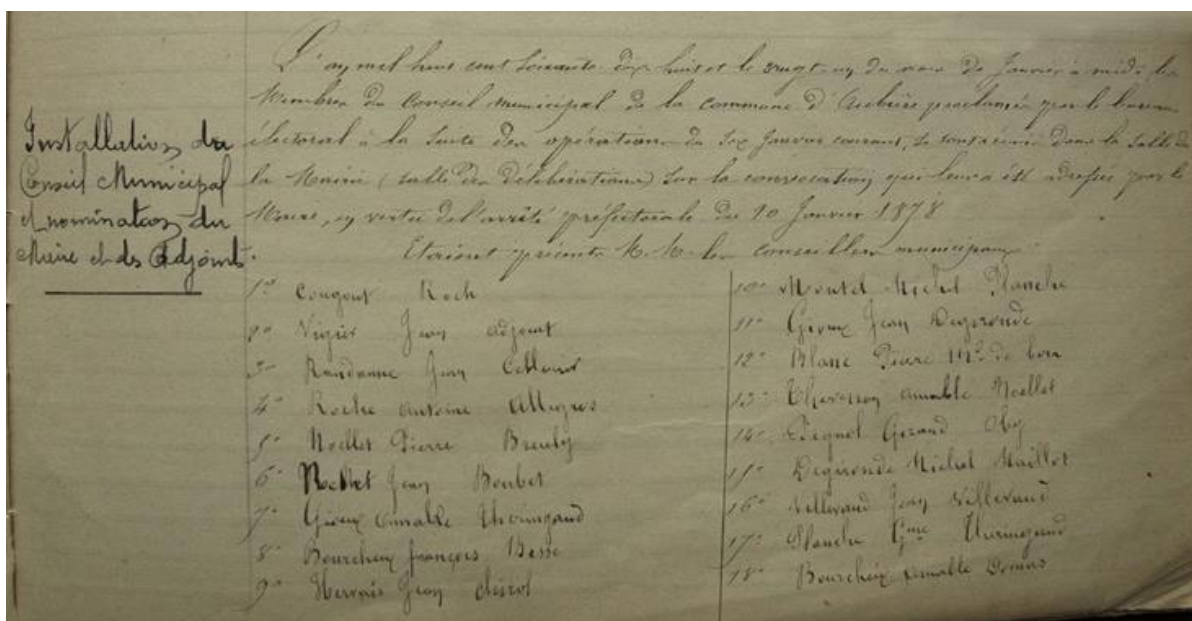 Installation du
Conseil Municipal
et nomination du
Maire et des Adjoints.
L'an mil huit cent soixante dix huit et le vingt un du mois de Janvier à midi les
Membres du Conseil municipal de la commune d'Aubière proclamés par le bureau
électoral à la suite des opérations du six Janvier courant, se sont réunis dans la salle de
la Mairie (salle des délibérations) sur la convocation qui leur a été adressée par le
Maire, en vertu de l'arrêté préfectorale du 10 Janvier 1878
Etaient présents M. M. les conseillers municipaux
1° Cougout Roch
2° Vigier Jean adjoint
3° Randanne Jean Cellerier
4° Roche Antoine
5° Noellet Pierre Breuly
6° Noellet Jean Boubet
7° Gioux Amable Thoringaud
8° Bourcheix françois Besse
9° Hervais Jean Chirol
10° Montel Michel Planche
11° Gioux Jean Degironde
12° Blanc Pierre Md de
13° Amable Noellet
14° Pignol Gerand Oby
15° Degironde Michel Maillot
16° Villevaud Jean Villevaud
17° Planche Gme Thoringaud
18° Bourcheix Amable